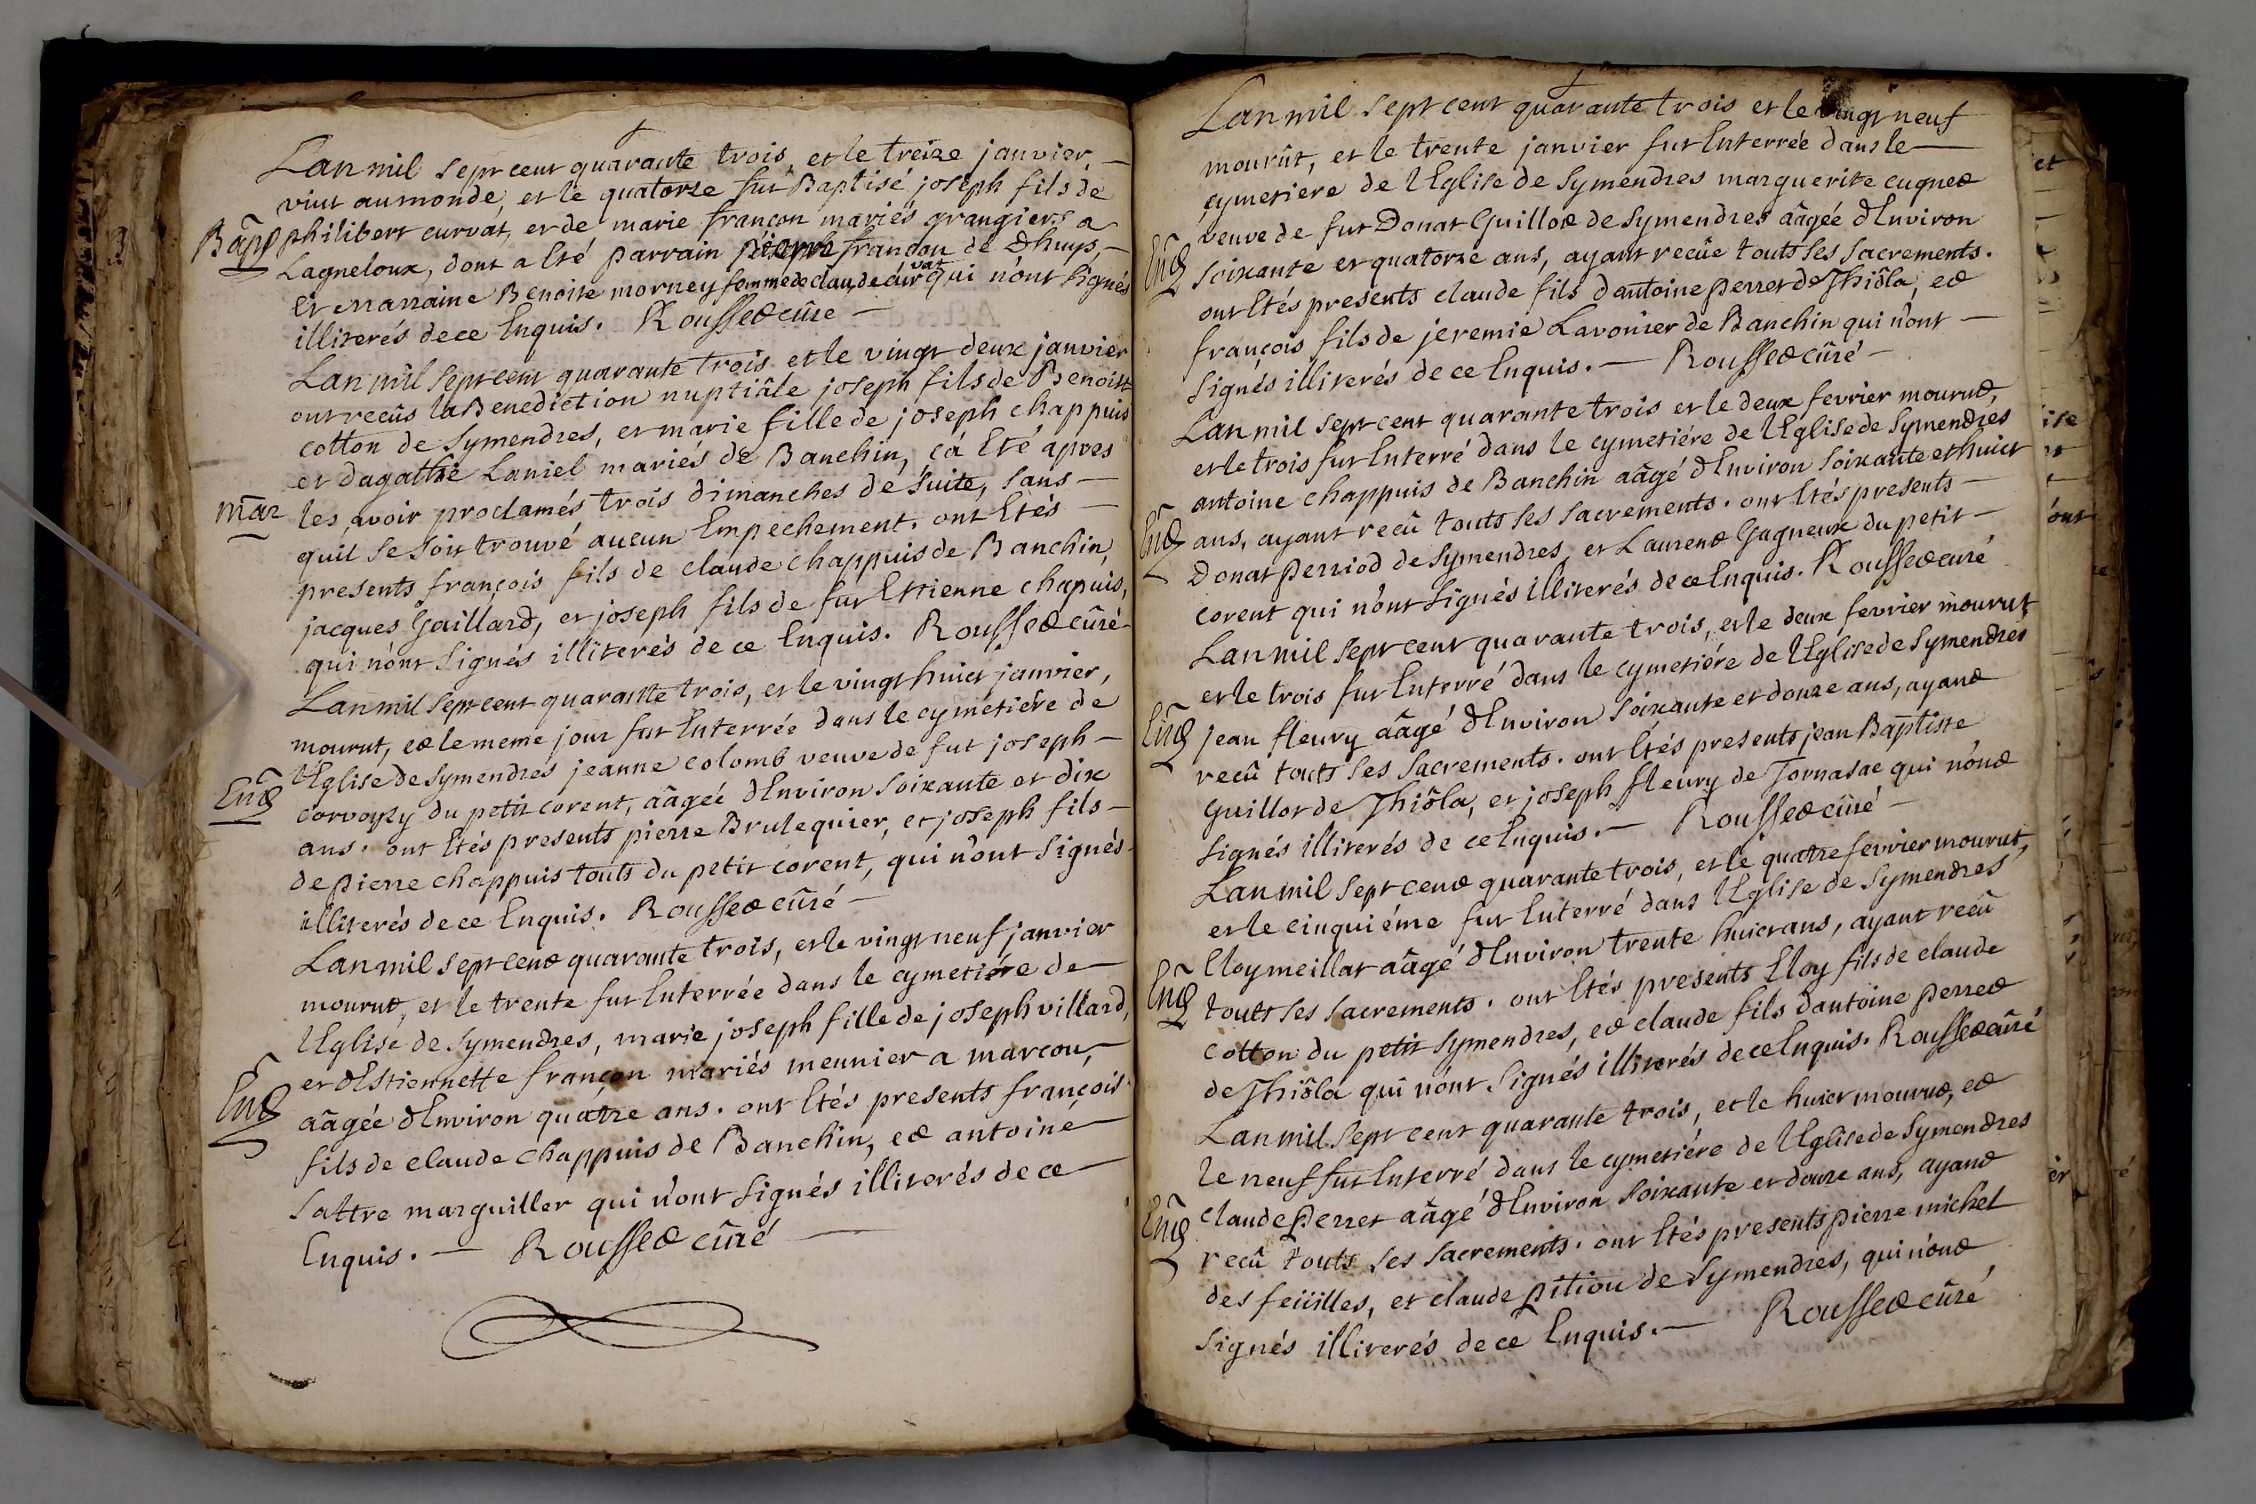 Lan mil sept cent quarante trois, et le treize janvier
vint au monde, et le quatorze fut Baptisé joseph fils de
Bapt philibert curvat, et de marie françon mariés grangiers a
Lagneloux, dont a Eté parrain françon de Dhuys,
et marraine Benoite morney femme de claude curvat qui n'ont signés
illiterés de ce Enquis. Roussed cûre
Lan mil sept cent quarante trois et le vingt deux janvier
ont recûs la Benediction nuptiâle joseph fils de Benoist
cotton de Symendres, et marie fille de joseph chappuis
et dagathe Laniel mariés de Banchin, cà Eté apres
mar les avoir proclamés trois dimanches de suite, sans
quil se soit trouvé aucun Empechement. ont Etés
presents françois fils de claude chappuis de Banchin,
jacques Gaillard, et joseph fils de fut Estienne chapuis,
qui n'ont signés illiterés de ce Enquis. Roussed cûré
Lan mil sept cent quarante trois, et le vingt huict janvier,
mourut, ed le meme jour fut Enterrée dans le cymetiére de
Ent lEglise de Symendres jeanne colomb veuve de fut joseph
corvoysy du petit corent, aâgée dEnviron soixante et dix
ans. ont Etés presents pierre Brulequier, et joseph fils
de pierre chappuis touts du petit corent, qui n'ont signés
illiterés de ce Enquis. Roussed cûré
Lan mil sept cend quarante trois, et le vingt neuf janvier
mourut, et le trente fut Enterrée dans le cymetiére de
lEglise de Symendres, marie joseph fille de joseph villard,
et dEstiennette françon mariés meunier a marcou,
Ent aâgée dEnviron quatre ans. ont Etés presents françois
fils de claude chappuis de Banchin, ed antoine
Sattre marguiller qui n'ont signés illiterés de ce
Enquis. Roussed cûré
Lan mil sept cent quarante trois et le vingt neuf
mourût, et le trente janvier fut Enterrée dans le
cymetiere de lEglise de Symendres marguerite cugned
veuve de fut Donat Guillod de Symendres aâgée dEnviron
Ent soixante et quatorze ans, ayant recûe touts ses sacrements.
ont Etés presents claude fils dantoine perret de Thiôla, ed
françois fils de jeremie Lavonier de Banchin qui n'ont
signés illiterés de ce Enquis. Roussed cûré
Lan mil sept cent quarante trois et le deux fevrier mourud,
et le trois fut Enterré dans le cymetiére de lEglise de Symendres
antoine chappuis de Banchin aâgé dEnviron soixante et huict
Ent ans, ayant recû touts ses sacrements. ont Etés presents
Donat perriod de Symendres, et Laurend Gagneux du petit
corent qui n'ont signés illiterés de ce Enquis. Roussed curé
Lan mil sept cent quarante trois, et le deux fevrier mourut
et le trois fut Enterré dans le cymetiére de lEglise de Symendres
Ent jean fleury aâgé dEnviron soixante et douze ans, ayand
recû touts ses sacrements. ont Etés presents jean Baptiste
Guillot de Thiôla, et joseph fleury de Tornasac qui n'ond
signés illiterés de ce Enquis. Roussed cûré
Lan mil sept cend quarante trois, et le quatre fevrier mourut,
et le cinquiéme fut Enterré dans lEglise de Symendres
Eloy meillat aâgé dEnviron trente huict ans, ayant recû
Ent touts ses sacrements. ont Etés presents Eloy fils de claude
cotton du petit Symendres, ed claude fils dantoine perred
de Thiôla qui n'ont signés illiterés de ce Enquis. Roussed cûré
Lan mil sept cent quarante trois, et le huict mourud, ed
le neuf fut Enterré dans le cymetiére de lEglise de Symendres
Ent claude perret aâgé dEnviron soixante et douze ans, ayand
recû touts ses sacrements. ont Etés presents pierre michel
des feüilles, et claude pitiou de Symendres, qui n'ond
signés illiterés de ce Enquis. Roussed cûré